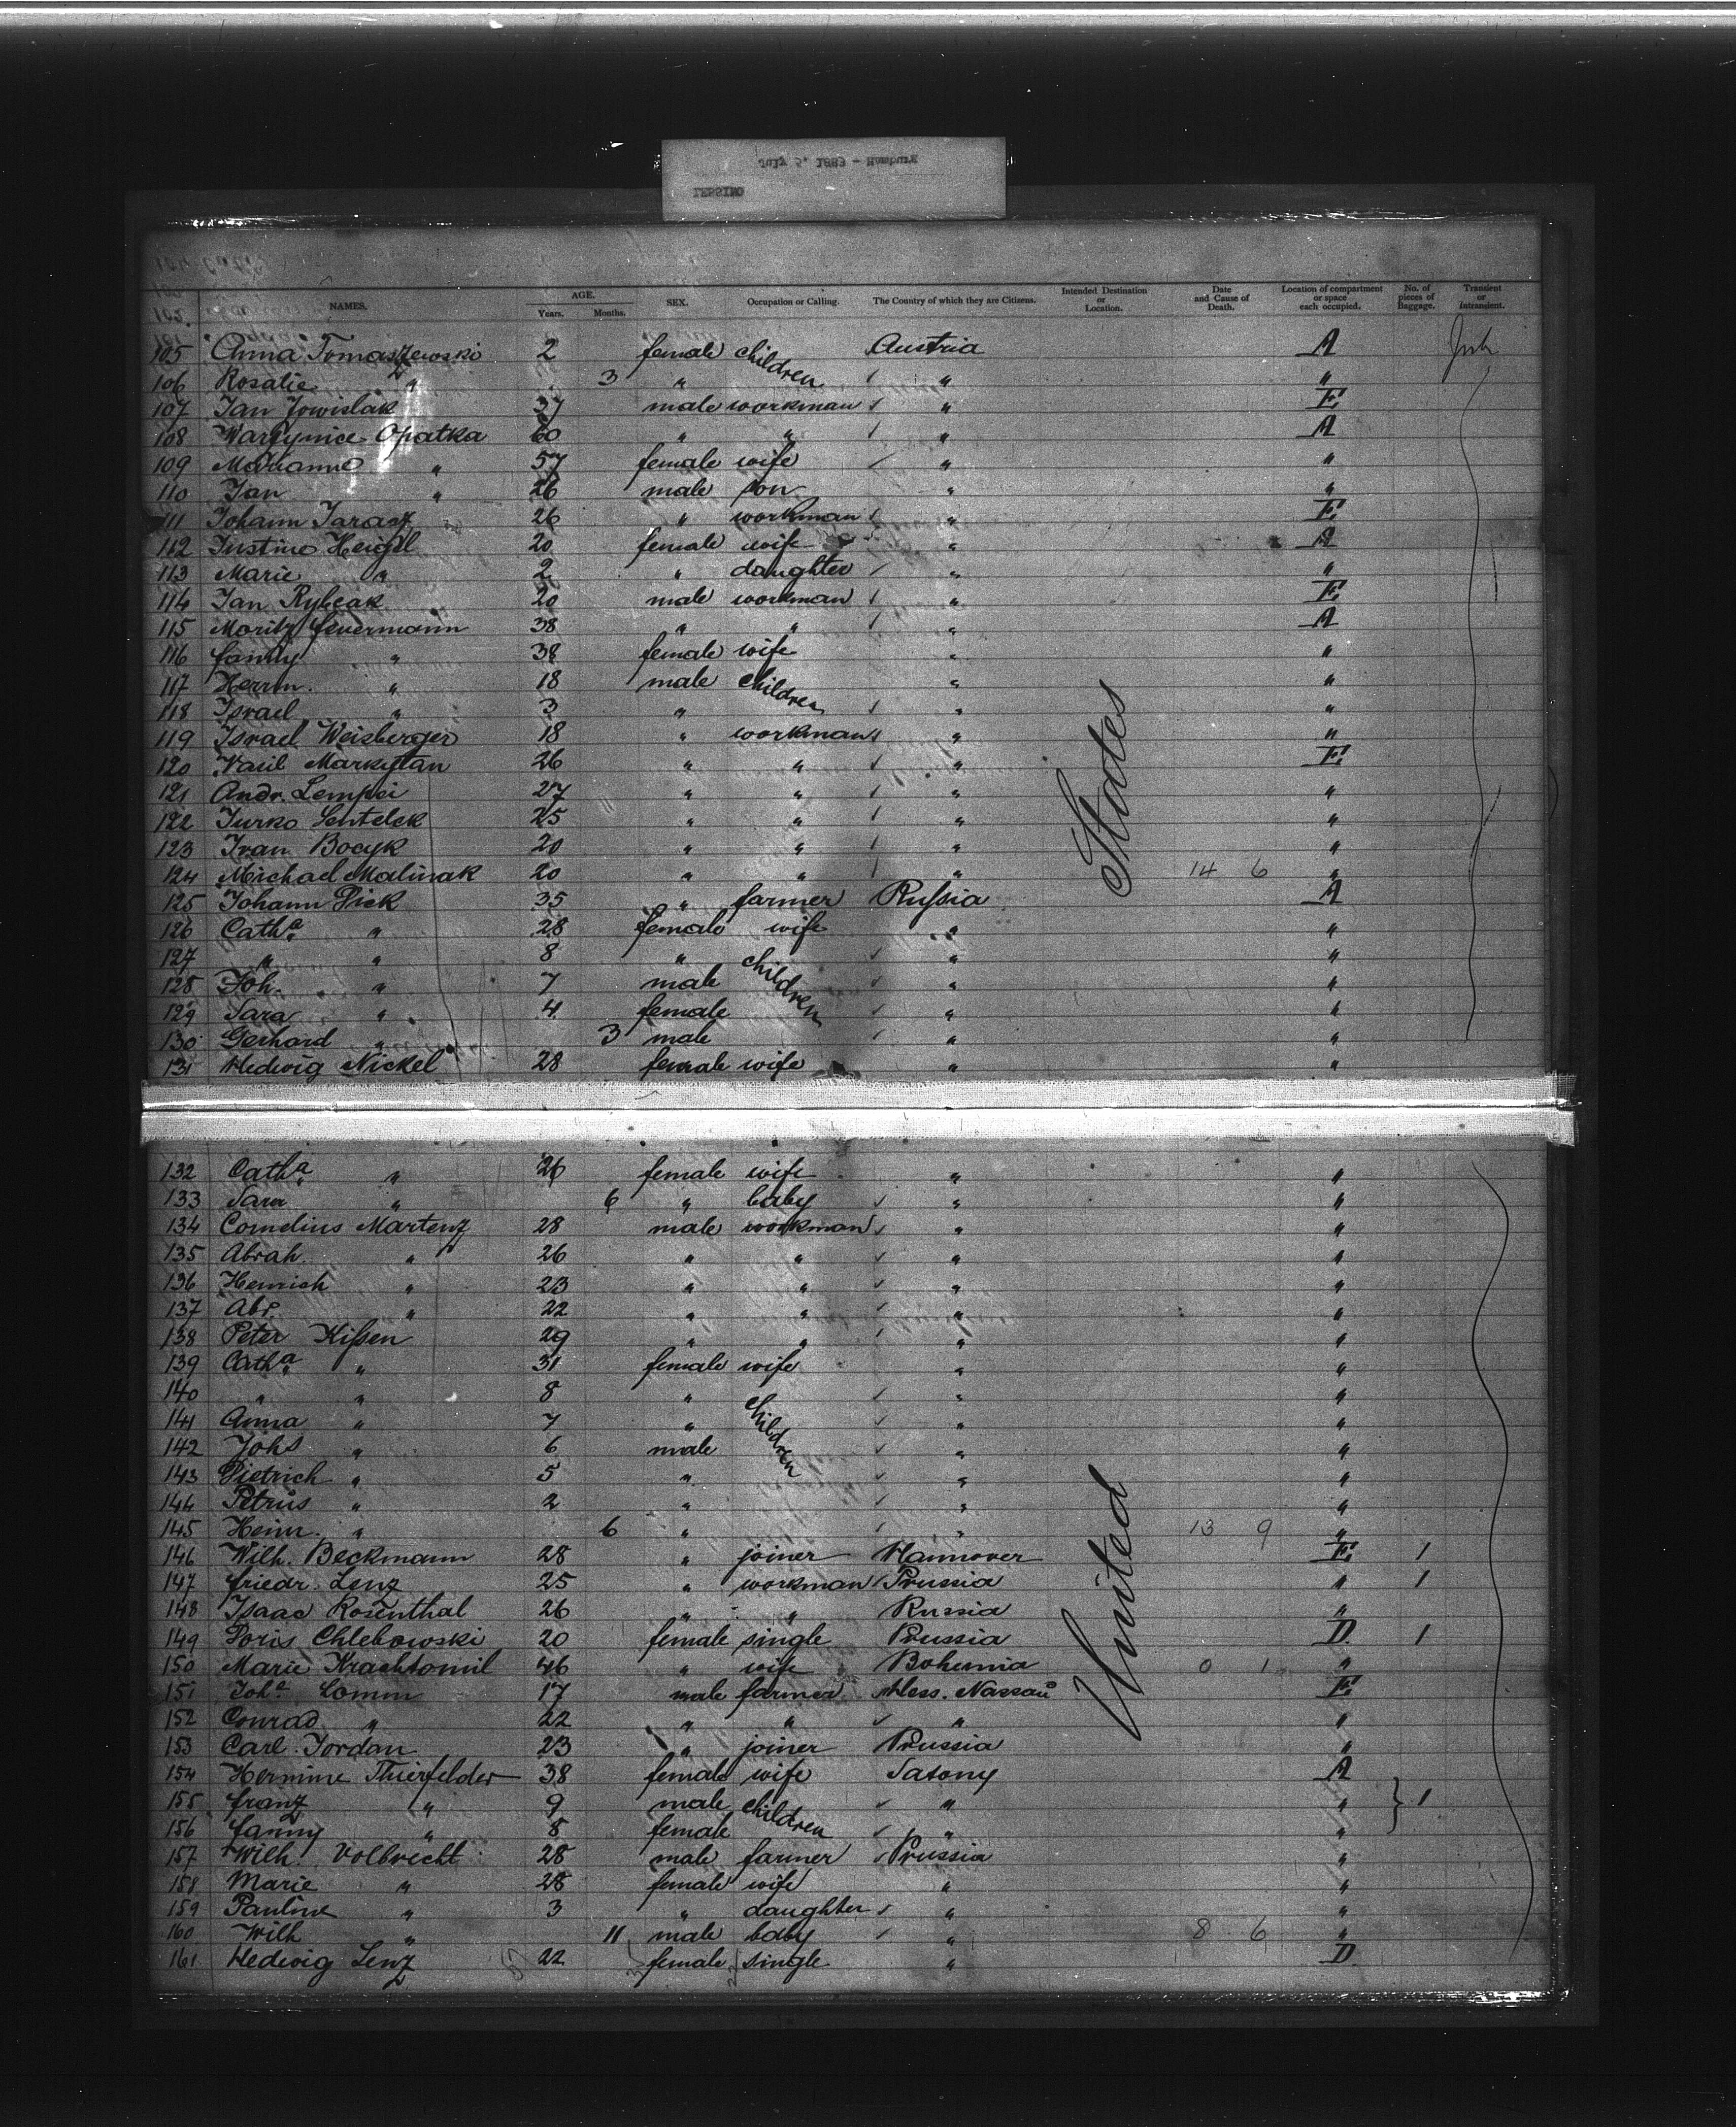 July 5, 1889 - Hamburg
LESSING
NAMES. AGE. Years. Months. SEX. Occupation or Calling. The Country of which they are Citizens. Intended Destination or Location. Date and Cause of Death. Location of compartment or space each occupied. No. of pieces of Baggage. Transient or Intransient.
105 Anna Tomaszewski 2 female children Austria A
106 Rosalie " 3 " " "
107 Jan Jowislak 37 male workman " E
108 Opatka 60 " " " A
109 Marianne " 57 female wife " "
110 Jan " 26 male son " "
111 Johann Tarasz 26 " workman " E
112 Justine Heigel 20 female wife " A
113 Marie " 2 " daughter " "
114 Jan Rybcak 20 male workman " E
115 Moritz Feuermann 38 " " " A
116 Fanny " 38 female wife " "
117 Herrm. " 18 male children " "
118 Israel " 3 " " "
119 Israel Weisberger 18 " workman " "
120 Wasil Markytan 26 " " " E
121 Andr. Lempei 27 " " " "
122 Jurko Sentelek 25 " " " "
123 Ivan Bocyk 20 " " " "
124 Michael Malinak 20 " " " 14 6 "
125 Johann Dick 35 " farmer Russia A
126 Catha " 28 female wife " "
127 " " 8 " children " "
128 Joh. " 7 male " "
129 Sara " 4 female " "
130 Gerhard " 3 male " "
131 Hedwig Nickel 28 female wife " "
132 Catha " 26 female wife " "
133 Sara " 6 " baby " "
134 Cornelius Martenz 28 male workman " "
135 Abrah. " 26 " " " "
136 Heinrich " 23 " " " "
137 Abr. " 22 " " " "
138 Peter Kissen 29 " " " "
139 Catha " 31 female wife " "
140 " " 8 " children " "
141 Anna " 7 " " "
142 Johs " 6 male " "
143 Dietrich " 5 " " "
144 Petrus " 2 " " "
145 Heinr. " 6 " " 13 9 "
146 Wilh. Beckmann 28 " joiner Hannover E 1
147 Friedr. Lenz 25 " workman Prussia " 1
148 Isaac Rosenthal 26 " " Russia "
149 Doris Chlebowski 20 female single Prussia D 1
150 Marie Krachtomil 46 " wife Bohemia 0 1 "
151 Joha Comm 17 male farmer Hess. Nassau E
152 Conrad " 22 " " " "
153 Carl Jordan 23 " joiner Prussia "
154 Hermine Thierfelder 38 female wife Saxony A
155 Franz " 9 male children " " 1
156 Fanny " 8 female " "
157 Wilh. Volbrecht 28 male farmer Prussia "
158 Marie " 28 female wife " "
159 Pauline " 3 " daughter " "
160 Wilh " 11 male baby " 8 6 "
161 Hedwig Lenz 22 female single " D
United States